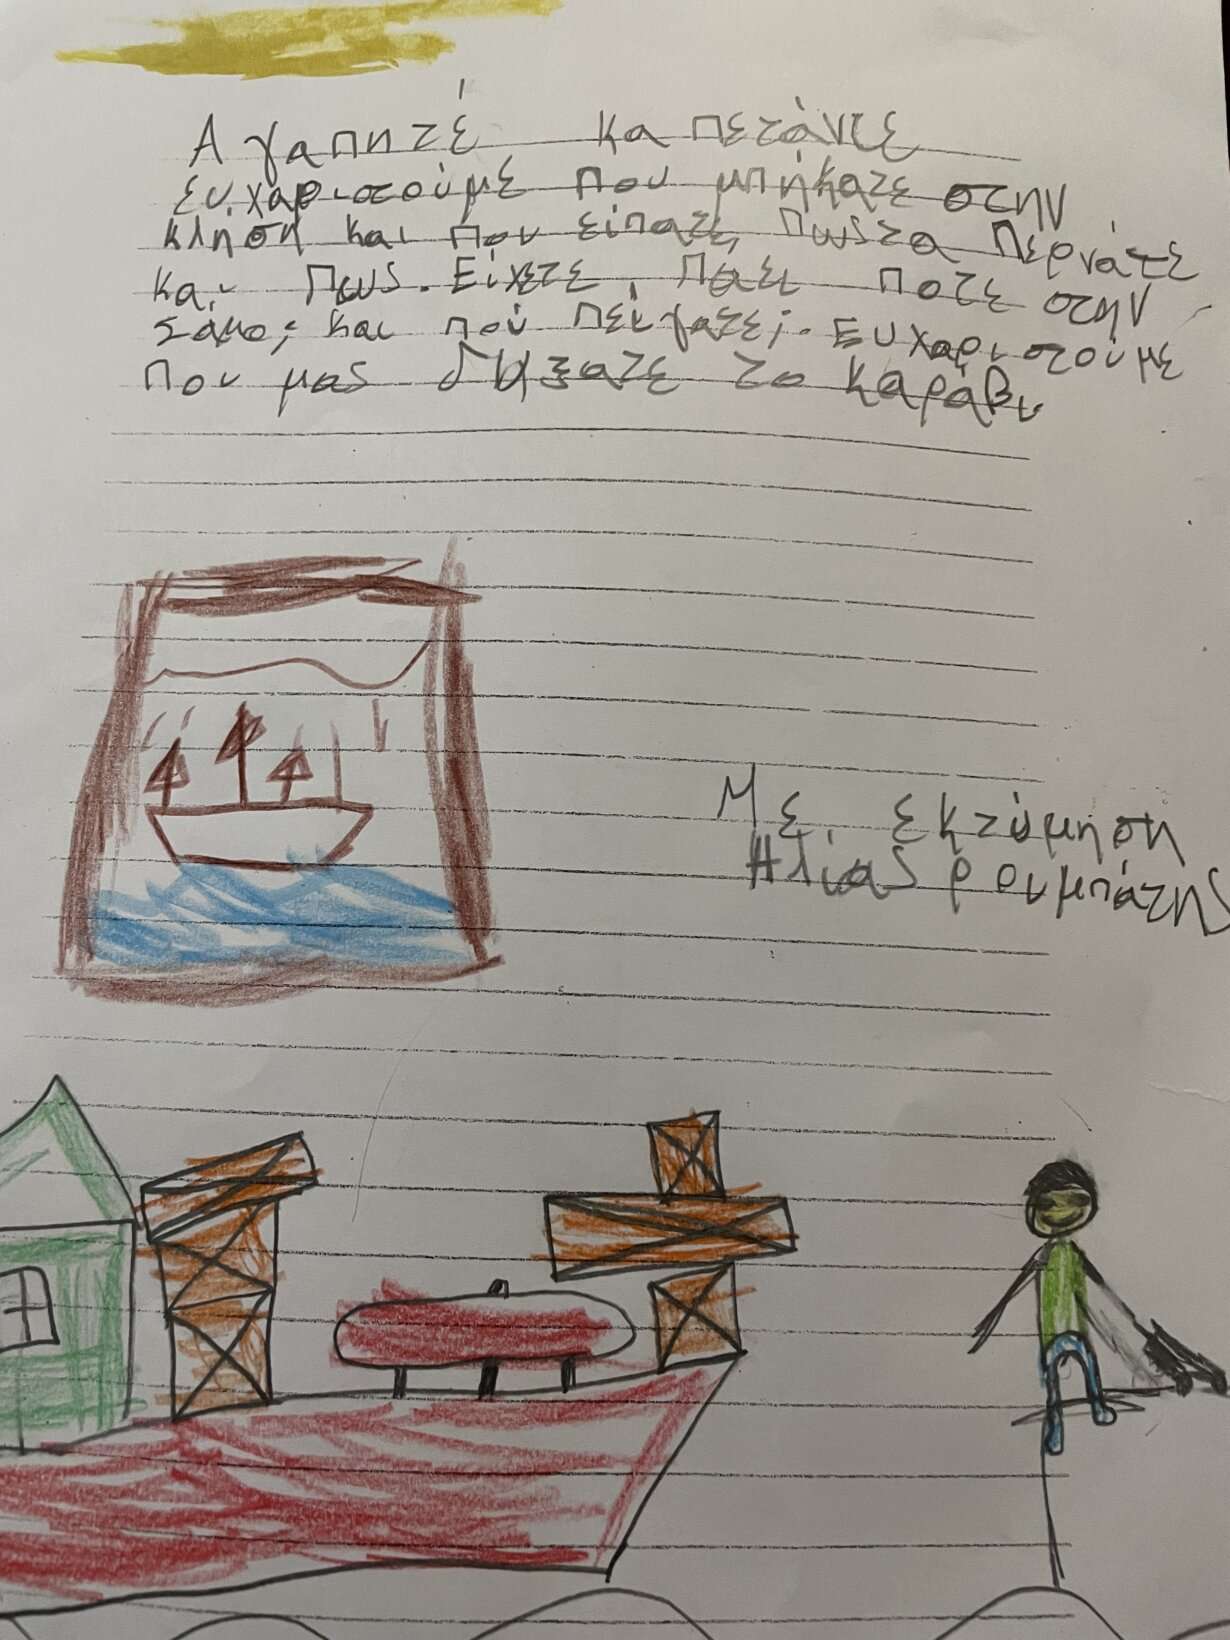 Αγαπητέ καπετάνιε
ευχαριστούμε που μπήκατε στην
κλήση και που είπατε πως τα περνάτε
και πως. Είχετε πάει ποτε στην
Σάμο; και πού πείγατε; Ευχαριστούμε
που μας δηξατε το καράβι
Με εκτύμηση
Ηλίας ρουμπάτης